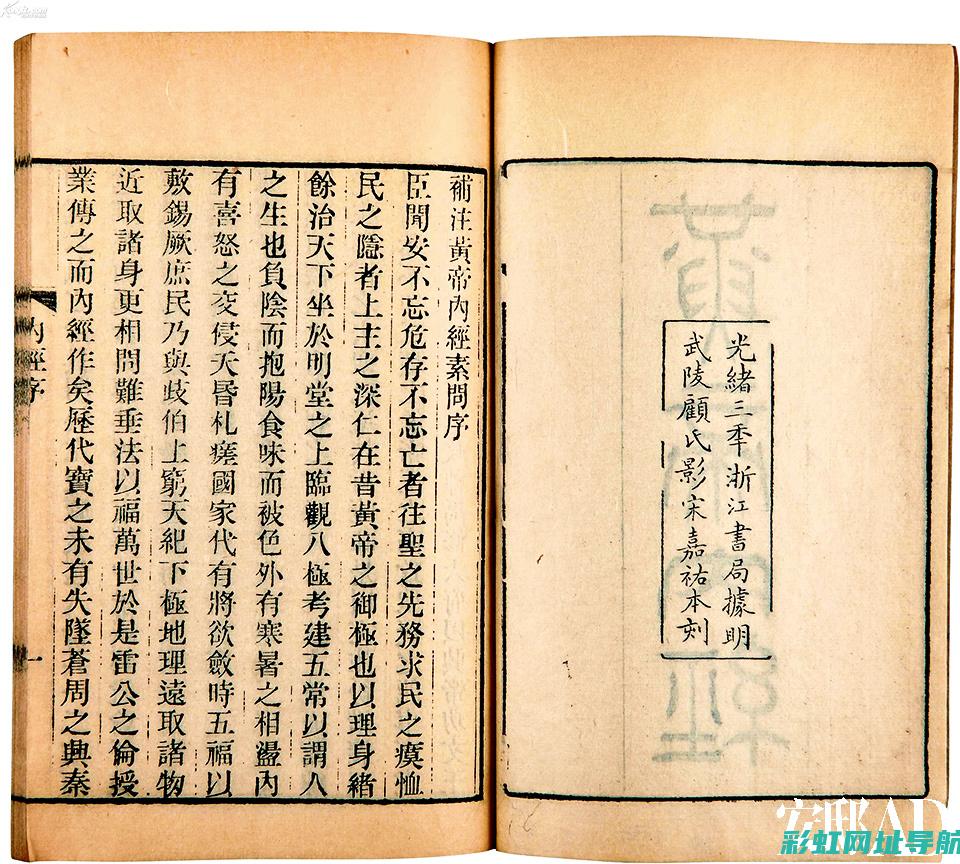 光緒三秊浙江書局據明
武陵顧氏影宋嘉祐本刻
補注黃帝內經素問序
臣聞安不忘危存不忘亡者往聖之先務求民之瘼恤
民之隱者上主之深仁在昔黃帝之御極也以理身緒
餘治天下坐於明堂之上臨觀八極考建五常以謂人
之生也負陰而抱陽食味而被色外有寒暑之相盪內
有喜怒之交侵夭昬札瘥國家代有將欲斂時五福以
敷錫厥庶民乃與歧伯上窮天紀下極地理遠取諸物
近取諸身更相問難垂法以福萬世於是雷公之倫授
業傳之而內經作矣歷代寶之未有失墜蒼周之興秦
內經序
一
彩虹网址导航